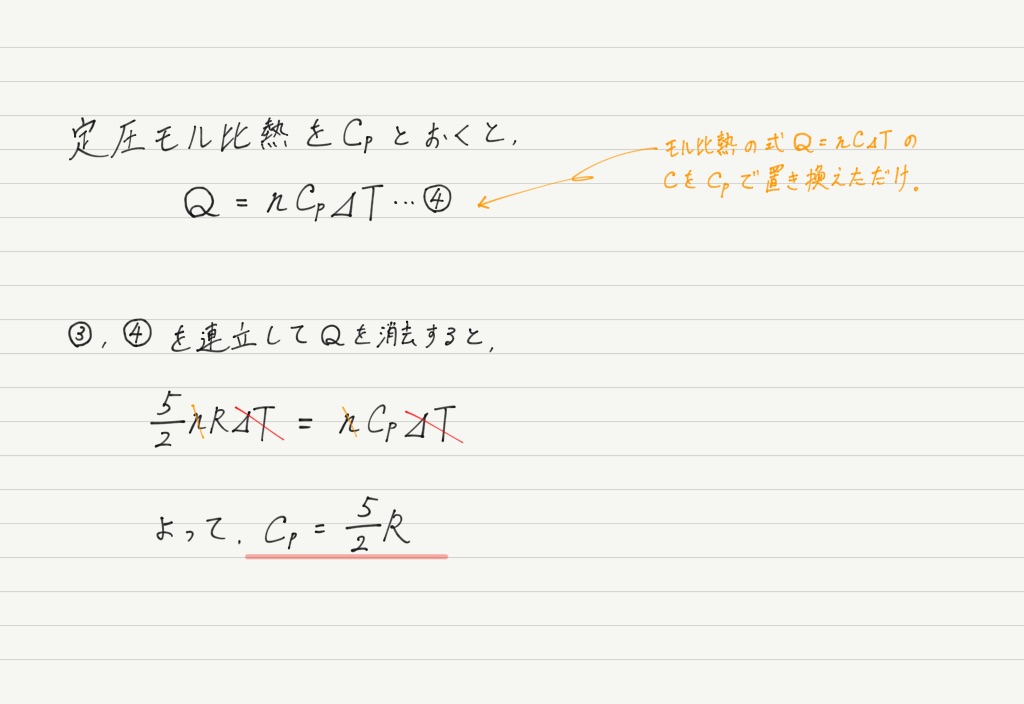 定圧モル比熱をCpとおくと,
Q = nCpΔT…④
モル比熱の式 Q=nCΔT の
Cを Cpで置き換えただけ。
③, ④ を連立してQを消去すると,
5/2 nRΔT = nCpΔT
よって, Cp = 5/2 R